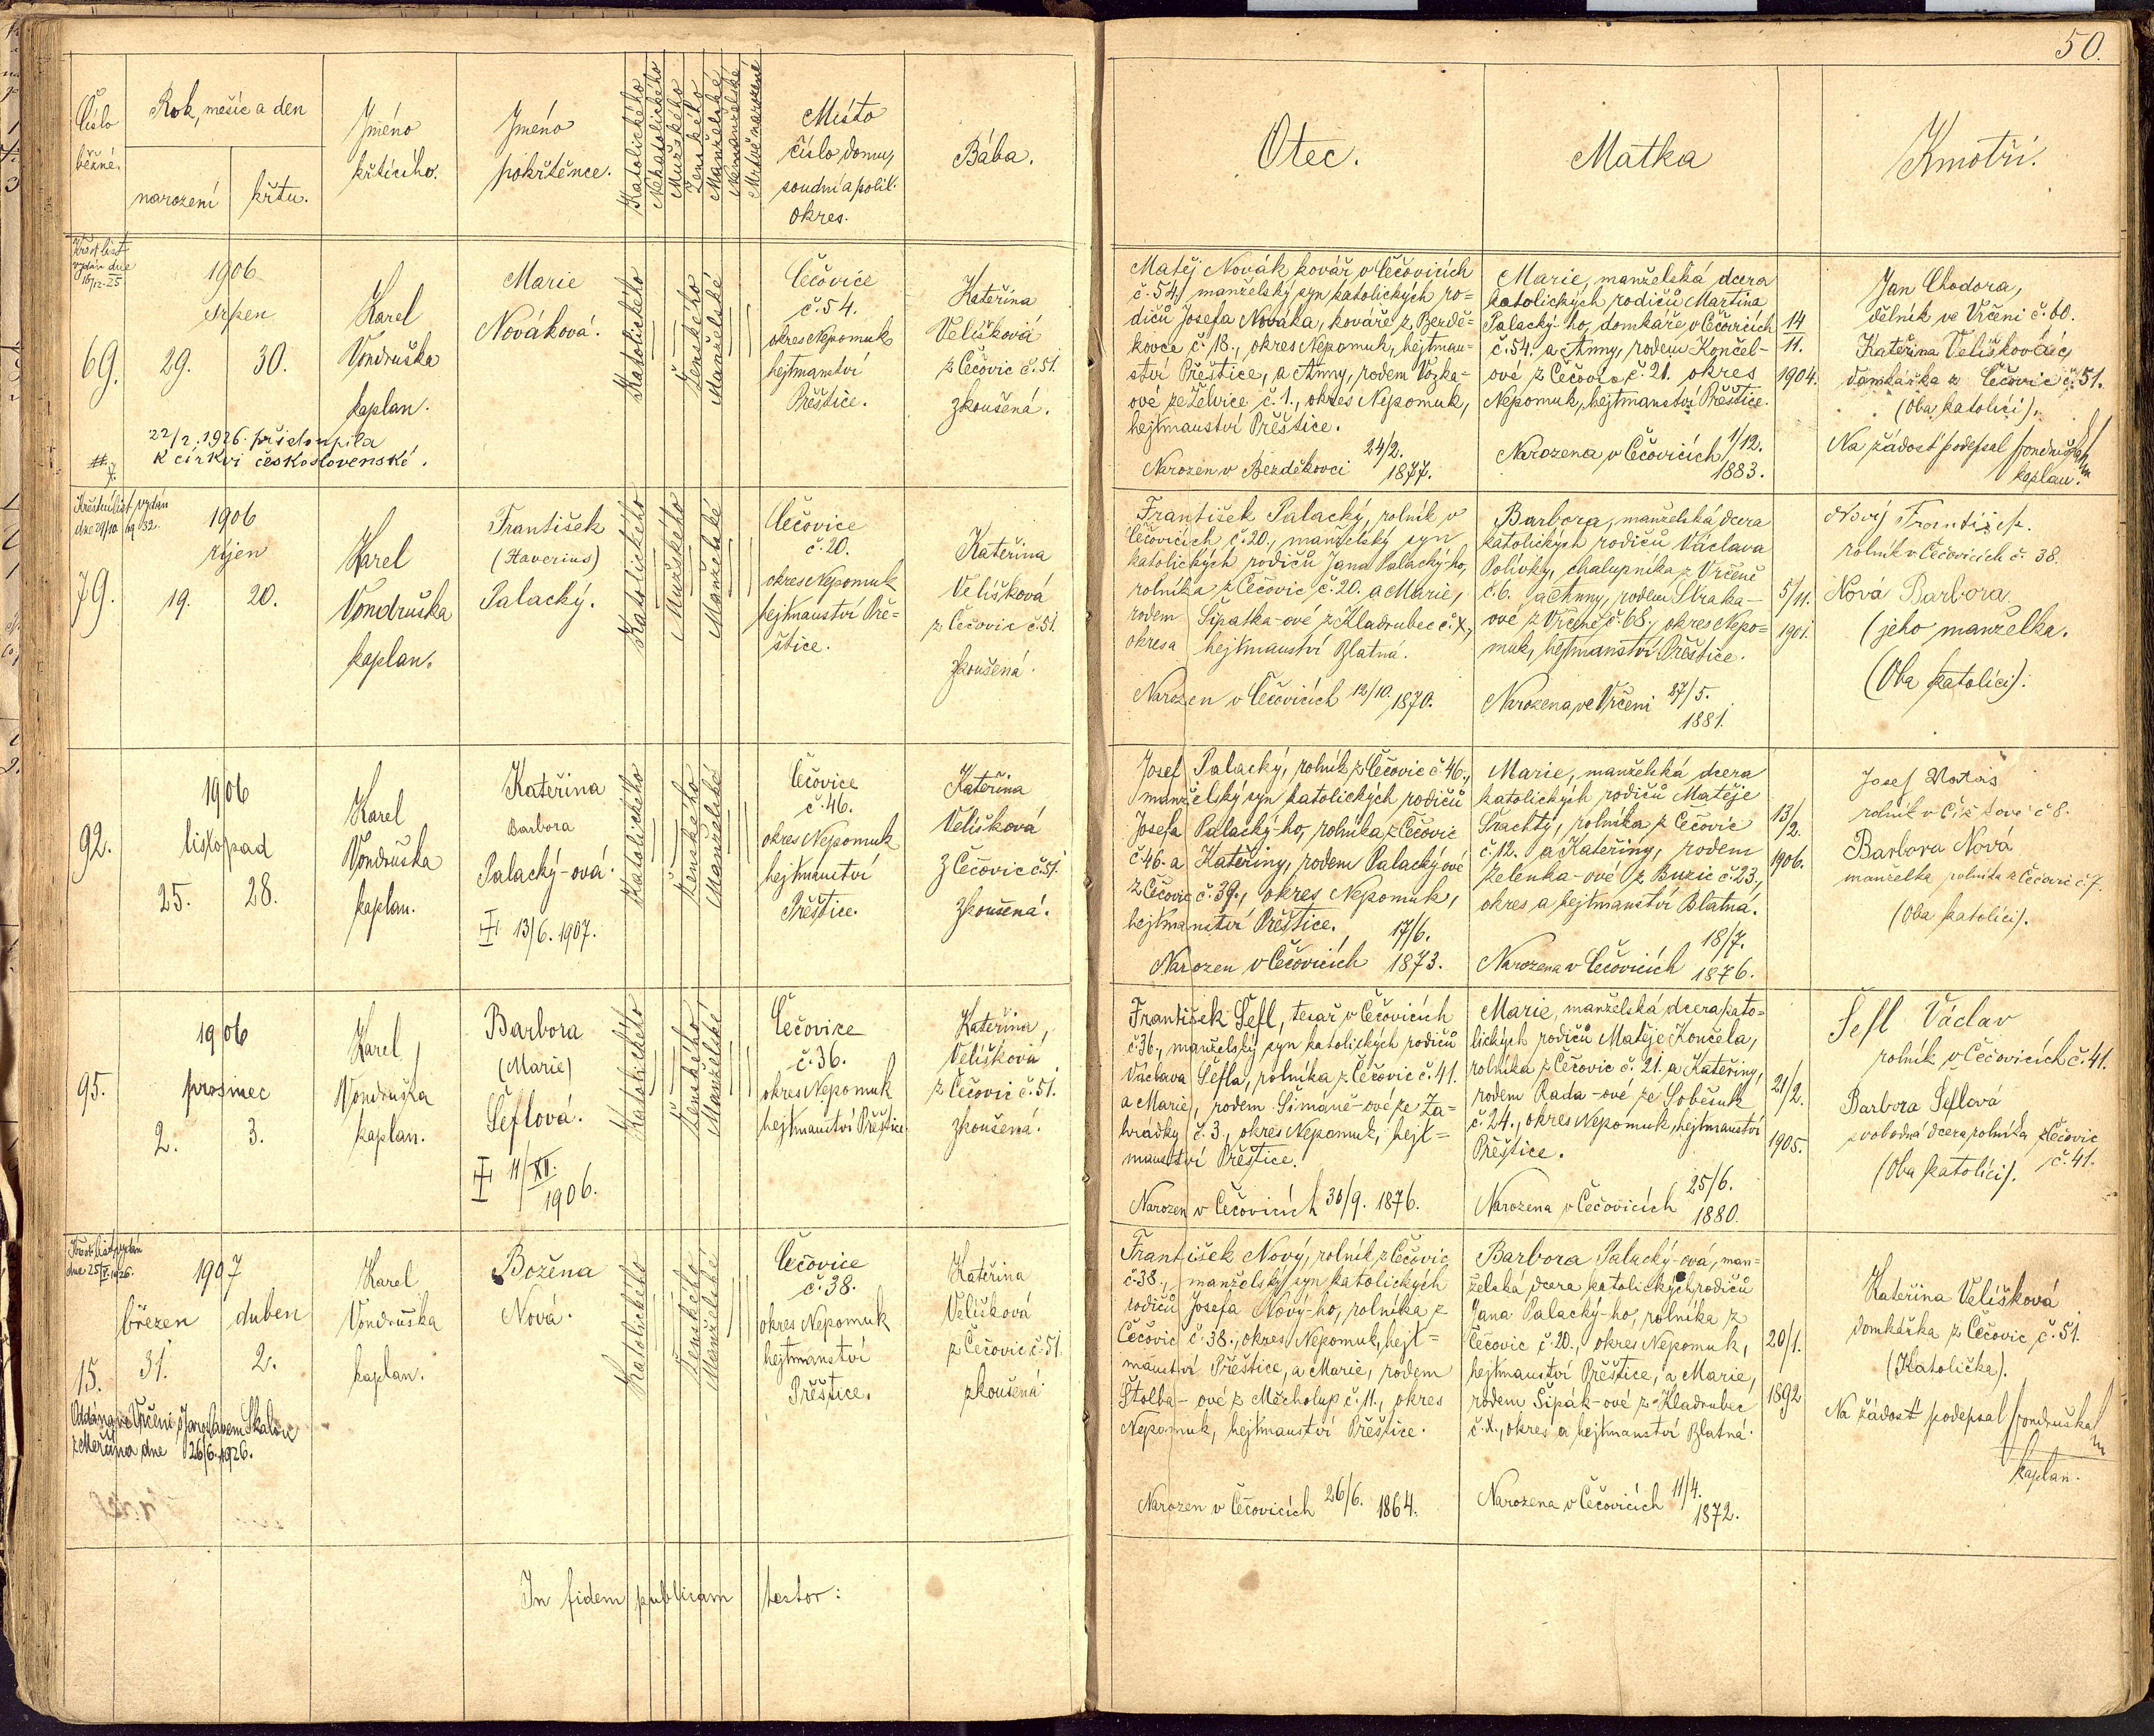 50.
Číslo
běžné.
Rok, měsíc a den
narození
křtu.
Jméno
křtícího.
Jméno
pokřtěnce.
Katolického
Nekatolického
Mužského
Ženského
Manželské
Nemanželské
Mrtvě narozené
Místo
číslo domu,
soudní a polit.
okres.
Bába.
Otec.
Matka
Kmotři.
Křest. list
vydán dne
16/12-25
69.
1906
srpen
29.
30.
Karel
Vondruška
kaplan.
22/2. 1926. přistoupila
k církvi československé.
Marie
Nováková.
Katolického
Ženského
Manželské
Čečovice
č. 54.
okres Nepomuk
hejtmanství
Přeštice.
Kateřina
Velíšková
z Čečovic č. 51.
zkoušená.
Matěj Novák kovář v Čečovicích
č. 54, manželský syn katolických ro=
dičů Josefa Nováka, kováře z Bezdě=
kovce č. 18., okres Nepomuk, hejtman=
ství Přeštice, a Anny, rodem Vozka-
ové ze Želvice č. 1., okres Nepomuk,
hejtmanství Přeštice.
Narozen v Bezděkovci 24/2. 1877.
Marie, manželská dcera
katolických rodičů Martina
Palacký-ho, domkáře v Čečovicích
č. 54. a Anny, rodem Končel-
ové z Čečovic č. 21. okres
Nepomuk, hejtmanství Přeštice.
Narozena v Čečovicích 1/12.
1883.
14
11.
1904.
Jan Chodora,
dělník ve Vrčeni č. 60.
Kateřina Velíšková
domkářka z Čečovic č. 51.
(Oba katolíci).
Na žádost podepsal Vondruška
kaplan.
Křestní list vydán
dne 29/10. 1932.
79.
1906
říjen
19.
20.
Karel
Vondruška
kaplan.
František
(Xaverius)
Palacký.
Katolického
Mužského
Manželské
Čečovice
č. 20.
okres Nepomuk
hejtmanství Pře=
štice.
Kateřina
Velíšková
z Čečovic č. 51.
zkoušená.
František Palacký, rolník v
Čečovicích č. 20., manželský syn
katolických rodičů Jana Palacký-ho,
rolníka z Čečovic č. 20. a Marie,
rodem Šipatka-ové z Kladrubec č. X.,
okres a hejtmanství Blatná.
Narozen v Čečovicích 12/10. 1870.
Barbora, manželská dcera
katolických rodičů Václava
Polívky, chalupníka z Vrčeně
č. 6. a Anny, rodem Straka-
ové z Vrčeně č. 68., okres Nepo=
muk, hejtmanství Přeštice.
Narozena ve Vrčeni 27/5.
1881.
5/11.
1901.
Nový František.
rolník v Čečovicích č. 38.
Nová Barbora
(jeho manželka.
(Oba katolíci).
92.
1906
listopad
25.
28.
Karel
Vondruška
kaplan.
Kateřina
Barbora
Palacký-ová.
13/6. 1907.
Katolického
Ženského
Manželské
Čečovice
č. 46.
okres Nepomuk
hejtmanství
Přeštice.
Kateřina
Velíšková
z Čečovic č. 51.
zkoušená.
Josef Palacký, rolník z Čečovic č. 46.,
manželský syn katolických rodičů
Josefa Palacký-ho, rolníka z Čečovic
č. 46. a Kateřiny, rodem Palackýové
z Čečovic č. 39., okres Nepomuk,
hejtmanství Přeštice.
Narozen v Čečovicích 17/6. 1873.
Marie, manželská dcera
katolických rodičů Matěje
Šrachty, rolníka z Čečovic
č. 12. a Kateřiny, rodem
Zelenka-ové z Buzic č. 23.,
okres a hejtmanství Blatná.
Narozena v Čečovicích 18/7.
1876.
13/2.
1906.
Josef
rolník v č. 8.
Barbora Nová
manželka rolníka z Čečovic č. 7.
(Oba katolíci).
95.
1906
prosinec
2.
3.
Karel
Vondruška
kaplan.
Barbora
(Marie)
Šeflová.
11/XII.
1906.
Katolického
Ženského
Manželské
Čečovice
č. 36.
okres Nepomuk
hejtmanství Přeštice.
Kateřina
Velíšková
z Čečovic č. 51.
zkoušená.
František Šefl, tesař v Čečovicích
č. 36., manželský syn katolických rodičů
Václava Šefla, rolníka z Čečovic č. 41.
a Marie, rodem Šimáně-ové ze Za=
hrádky č. 3., okres Nepomuk, hejt=
manství Přeštice.
Narozen v Čečovicích 30/9. 1876.
Marie, manželská dcera kato=
lických rodičů Matěje Končela,
rolníka z Čečovic č. 21. a Kateřiny,
rodem Rada-ové ze Soběsuk
č. 24., okres Nepomuk, hejtmanství
Přeštice.
Narozena v Čečovicích 25/6.
1880.
21/2.
1905.
Šefl Václav
rolník v Čečovicích č. 41.
Barbora Šeflová
svobodná dcera rolníka z Čečovic
č. 41.
(Oba katolíci).
Křest. list vydán
dne 25/V. 1926.
15.
1907
březen
duben
31.
2.
Oddána ve Vrčeni s Jaroslavem Skalou
z Merklína dne 26/6. 1926.
Karel
Vondruška
kaplan.
Božena
Nová.
Katolického
Ženského
Manželské
Čečovice
č. 38.
okres Nepomuk
hejtmanství
Přeštice.
Kateřina
Velíšková
z Čečovic č. 51.
zkoušená
František Nový, rolník z Čečovic
č. 38., manželský syn katolických
rodičů Josefa Nový-ho, rolníka z
Čečovic č. 38., okres Nepomuk, hejt=
manství Přeštice, a Marie, rodem
Štolba-ové z Měcholup č. 11., okres
Nepomuk, hejtmanství Přeštice.
Narozen v Čečovicích 26/6. 1864.
Barbora Palacký-ová, man=
želská dcera katolických rodičů
Jana Palacký-ho, rolníka z
Čečovic č. 20., okres Nepomuk,
hejtmanství Přeštice, a Marie,
rodem Šipák-ové z Kladrubec
č. X., okres a hejtmanství Blatná.
Narozena v Čečovicích 11/4.
1872.
20/1.
1892
Kateřina Velíšková
domkářka z Čečovic č. 51.
(Katolička).
Na žádost podepsal Vondruška
kaplan.
In fidem publicam testor: